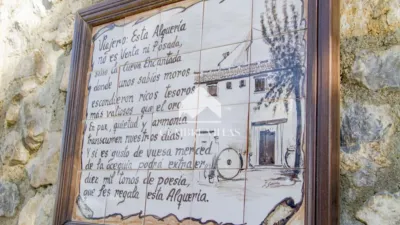 Viajero: Esta Alquería
no es Venta ni Posada,
sino la Cueva Encantada
donde unos sabios moros
escondieron ricos tesoros
más valiosos que el oro.
En paz, quietud y armonía
transcurren nuestros días.
Y si es gusto de vuesa merced
de la acequia podrá extraer
diez mil tonos de poesía,
que les regala esta Alquería.
VILLAS